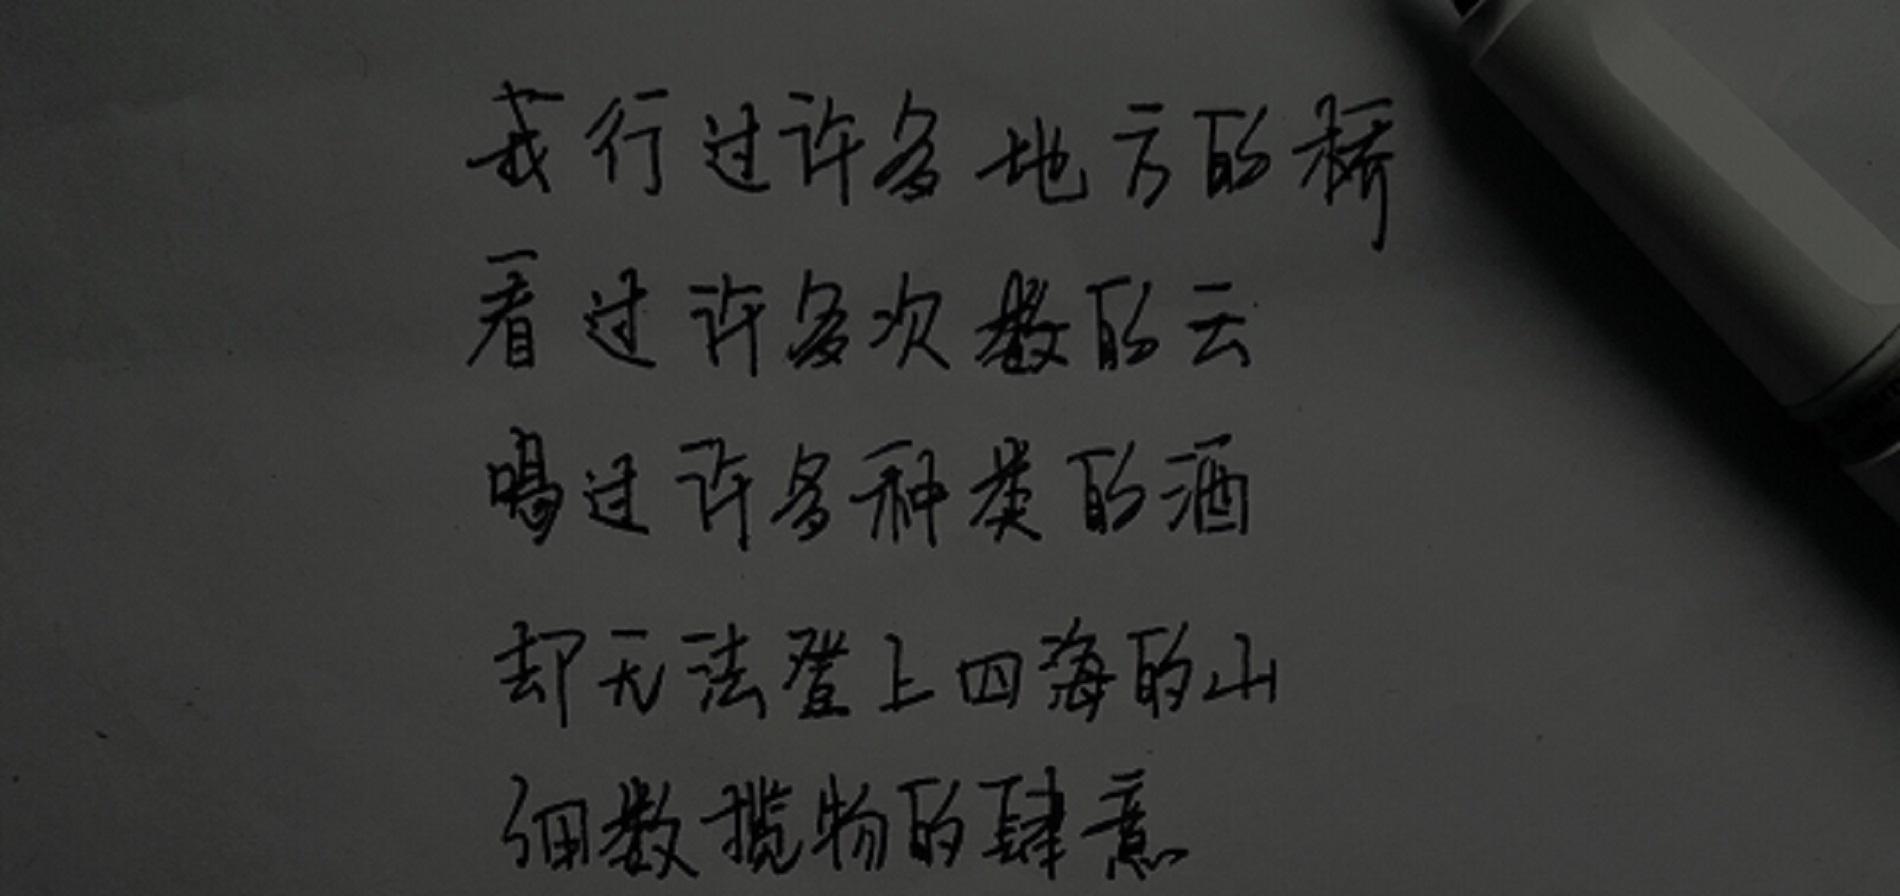 我行过许多地方的桥
看过许多次数的云
喝过许多种类的酒
却无法登上四海的山
细数揽物的肆意